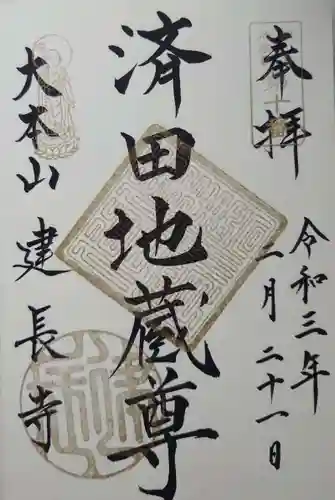 奉拝
令和三年
一月二十一日
済田地蔵尊
大本山
建長寺